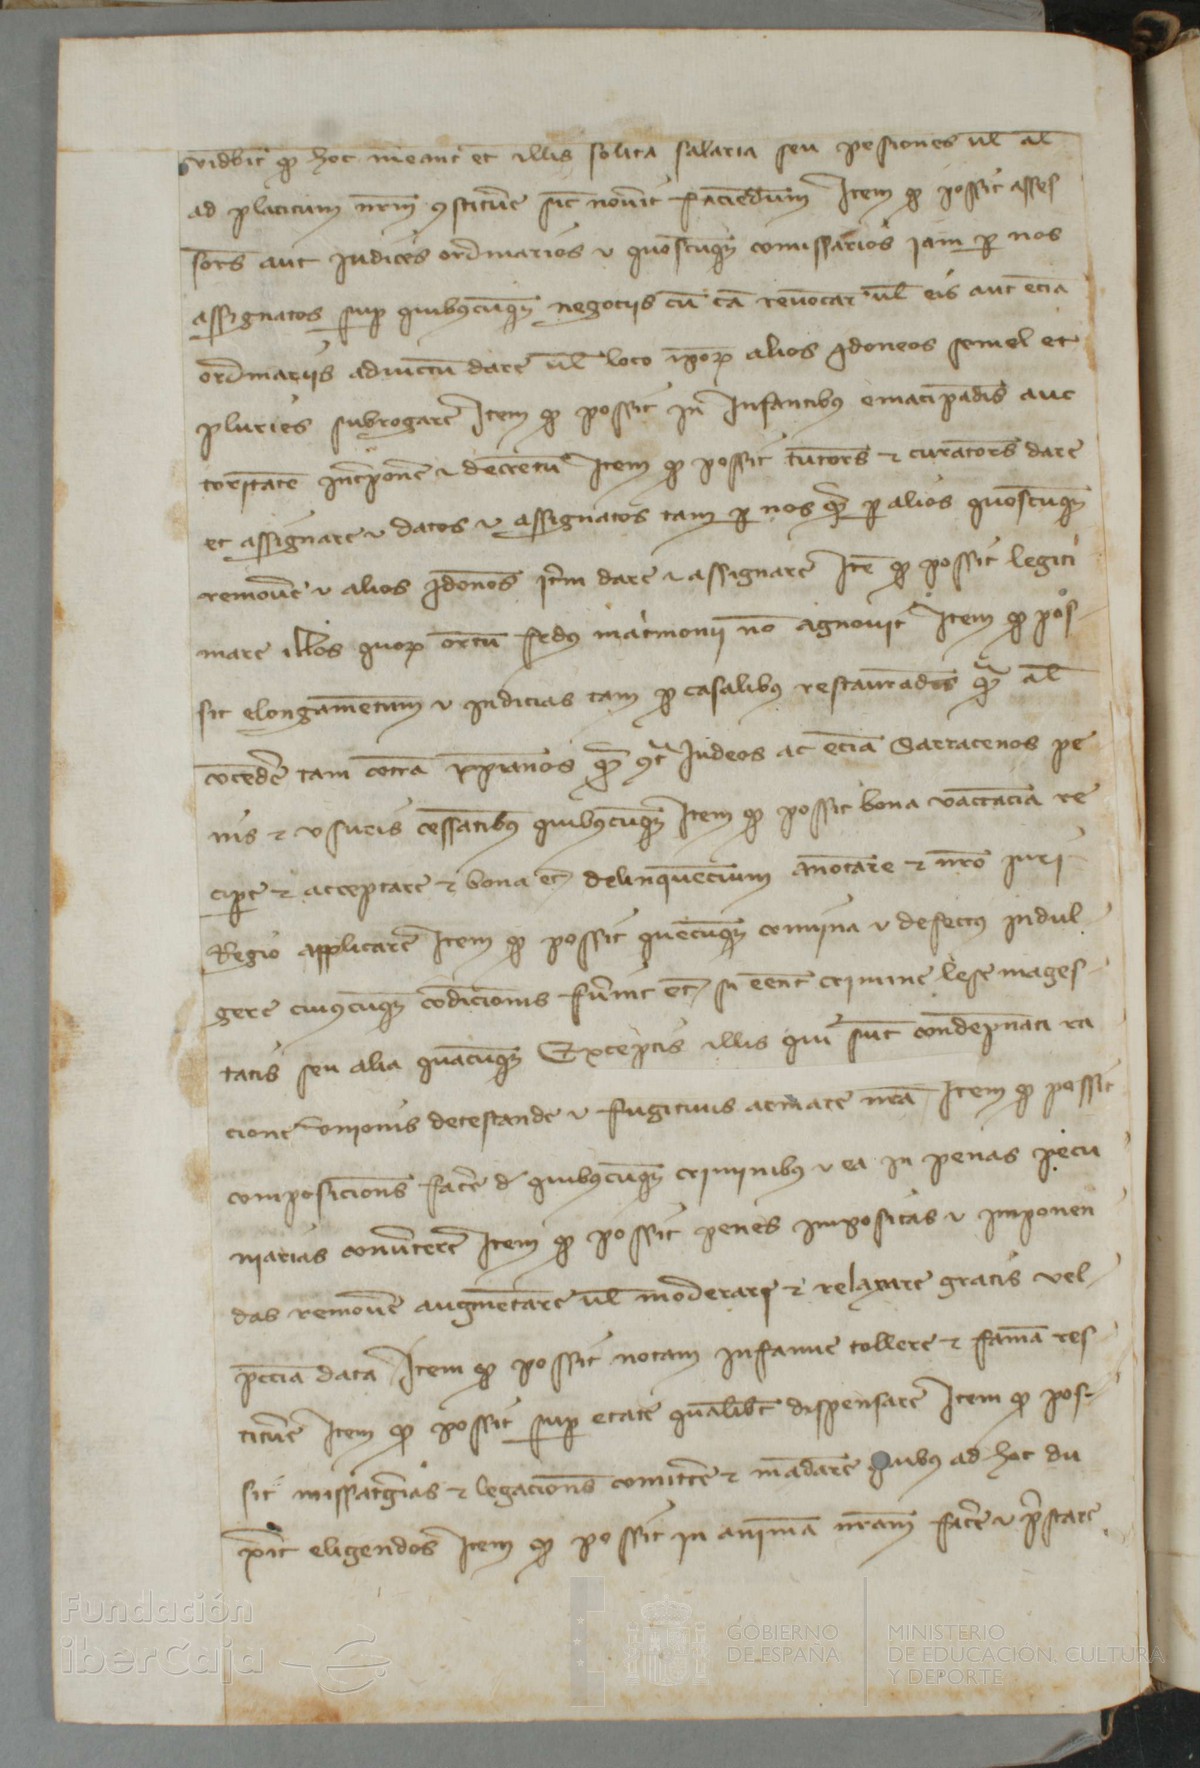 videbit qd hoc meant et illis solita salaria seu pesiones ul al
ad placitum nrm 9stitue sic novit faciedum Item qd possit asses
sors aut judices ordinarios et quoscuq comissarios iam p nos
assignatos sup quibuscuq negociis cu ca revocar ul eis aut ecia
ordinariis adiuctu dare ul loco ipor alios ydoneos semel et
pluries subrogare Item qd possit in Infantibus emacipadis auc
toritate intpone et decretu Item qd possit tutors et curators dare
et assignare et datos et assignatos tam p nos q p alios quoscuq
remove et alios ydoneos itm dare et assignare Ite qd possit legiti
mare illos quor ortu fedus matimonii no agnovit Item qd pos
sit elongamentum et inducias tam p casalibus restaurades q al
cocede tam cotra xpianos q 9t Judeos ac ecia Sarracenos pe
nis et usuris cessatibus quibuscuq Item qd possit bona vaccacia re
cipe et acceptare et bona et delinquecium anotare et nro juri
Regio applicare Item qd possit quecuq comina et defectus indul
gere cuiuscuq codicionis fuerint et si eent crimine lese mages
tatis seu alia quacuq Exceptis illis qui sunt condepnati ra
cione unionis detestande et fugitivis armate nra Item qd possit
composicions face d quibuscuq criminibus et ea in penas pecu
niarias convertere Item qd possit penes impositas et imponen
das remove augmetare ul moderare et relaxare gracis vel
peccia data Item qd possit notam infamie tollere et fama res
titue Item qd possit sup etate qualibet dispensare Item qd pos
sit missatgerias et legacions comitte et madare quibus ad hoc du
xit eligendos Item qd possit in anima nram face et pstare
Fundación
iberCaja
GOBIERNO
DE ESPAÑA
MINISTERIO
DE EDUCACIÓN, CULTURA
Y DEPORTE